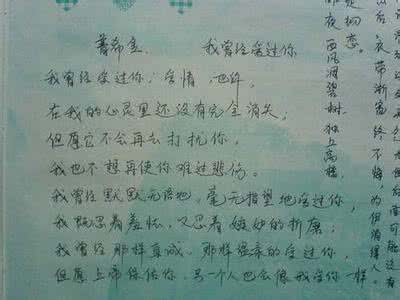 普希金 我曾经爱过你
我曾经爱过你,爱情,也许,
在我的心灵里还没有完全消失,
但愿它不会再去打扰你,
我也不想再使你难过悲伤。
我曾经默默无语地,毫无指望地爱过你,
我既忍着羞怯,又忍着嫉妒的折磨;
我曾经那样真诚,那样温柔的爱过你,
但愿上帝保佑你,另一个人也会像我爱你一样
衣带渐宽终不悔,为伊消得人
初恋。
夜西风凋碧树.独上高楼